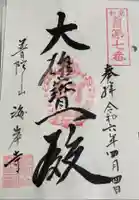 第七番
奉拝 令和六年四月四日
大雄寶殿
普陀山 海岸寺